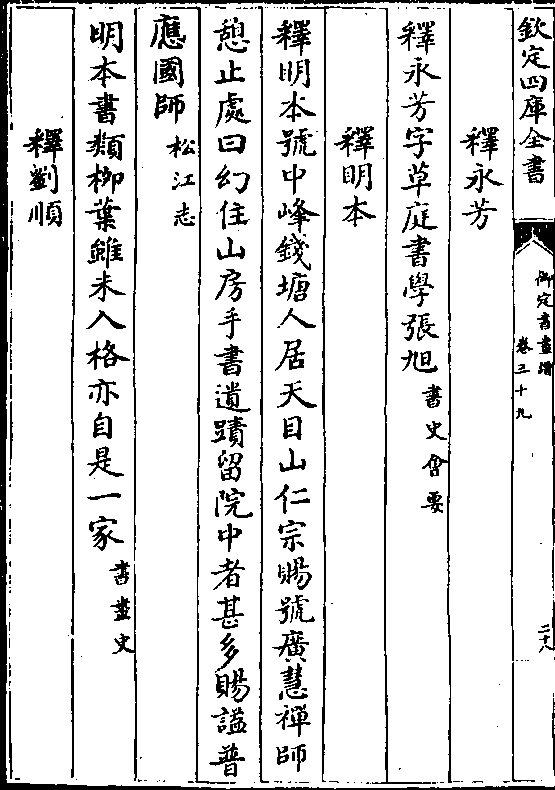 欽定四庫全書
御定書畫譜
卷三十九
二十八
釋永芳
釋永芳字草庭書學張旭書史㑹要
釋明本
釋明本號中峰錢塘人居天目山仁宗賜號廣慧禪師
憩止處曰幻住山房手書遺蹟留院中者甚多賜諡普
應國師松江志
明本書類栁葉雖未入格亦自是一家書畫史
釋劉順